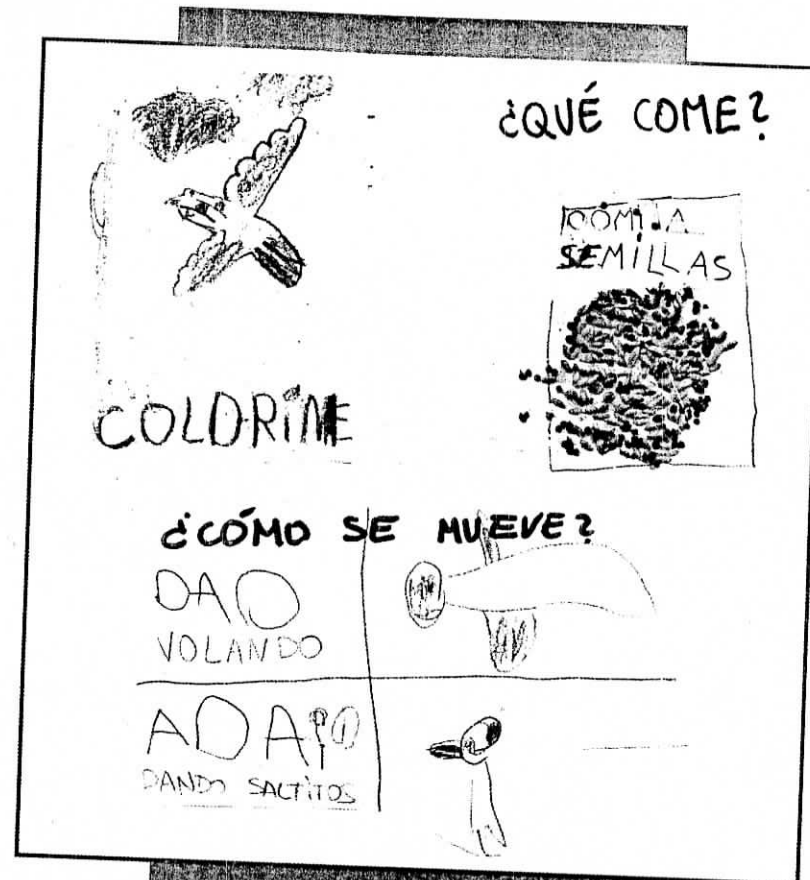 ¿QUÉ COME?
SEMILLAS
COLORINE
¿CÓMO SE MUEVE?
DAO
VOLANDO
DANDO SALTITOS